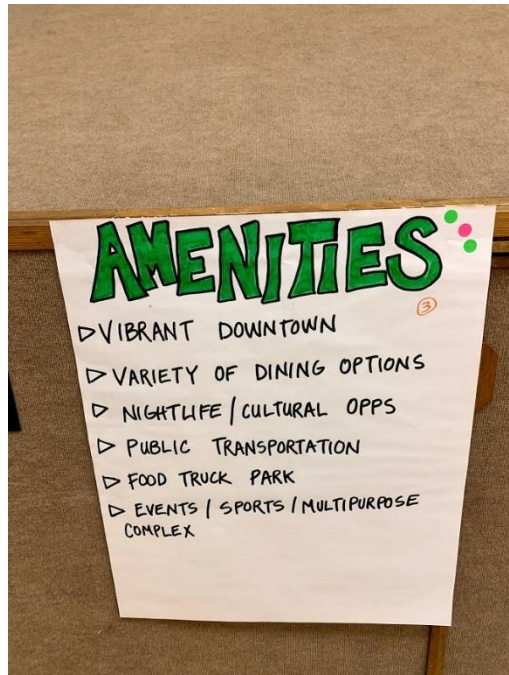 AMENITIES
③
▷ VIBRANT DOWNTOWN
▷ VARIETY OF DINING OPTIONS
▷ NIGHTLIFE / CULTURAL OPPS
▷ PUBLIC TRANSPORTATION
▷ FOOD TRUCK PARK
▷ EVENTS / SPORTS / MULTIPURPOSE
COMPLEX